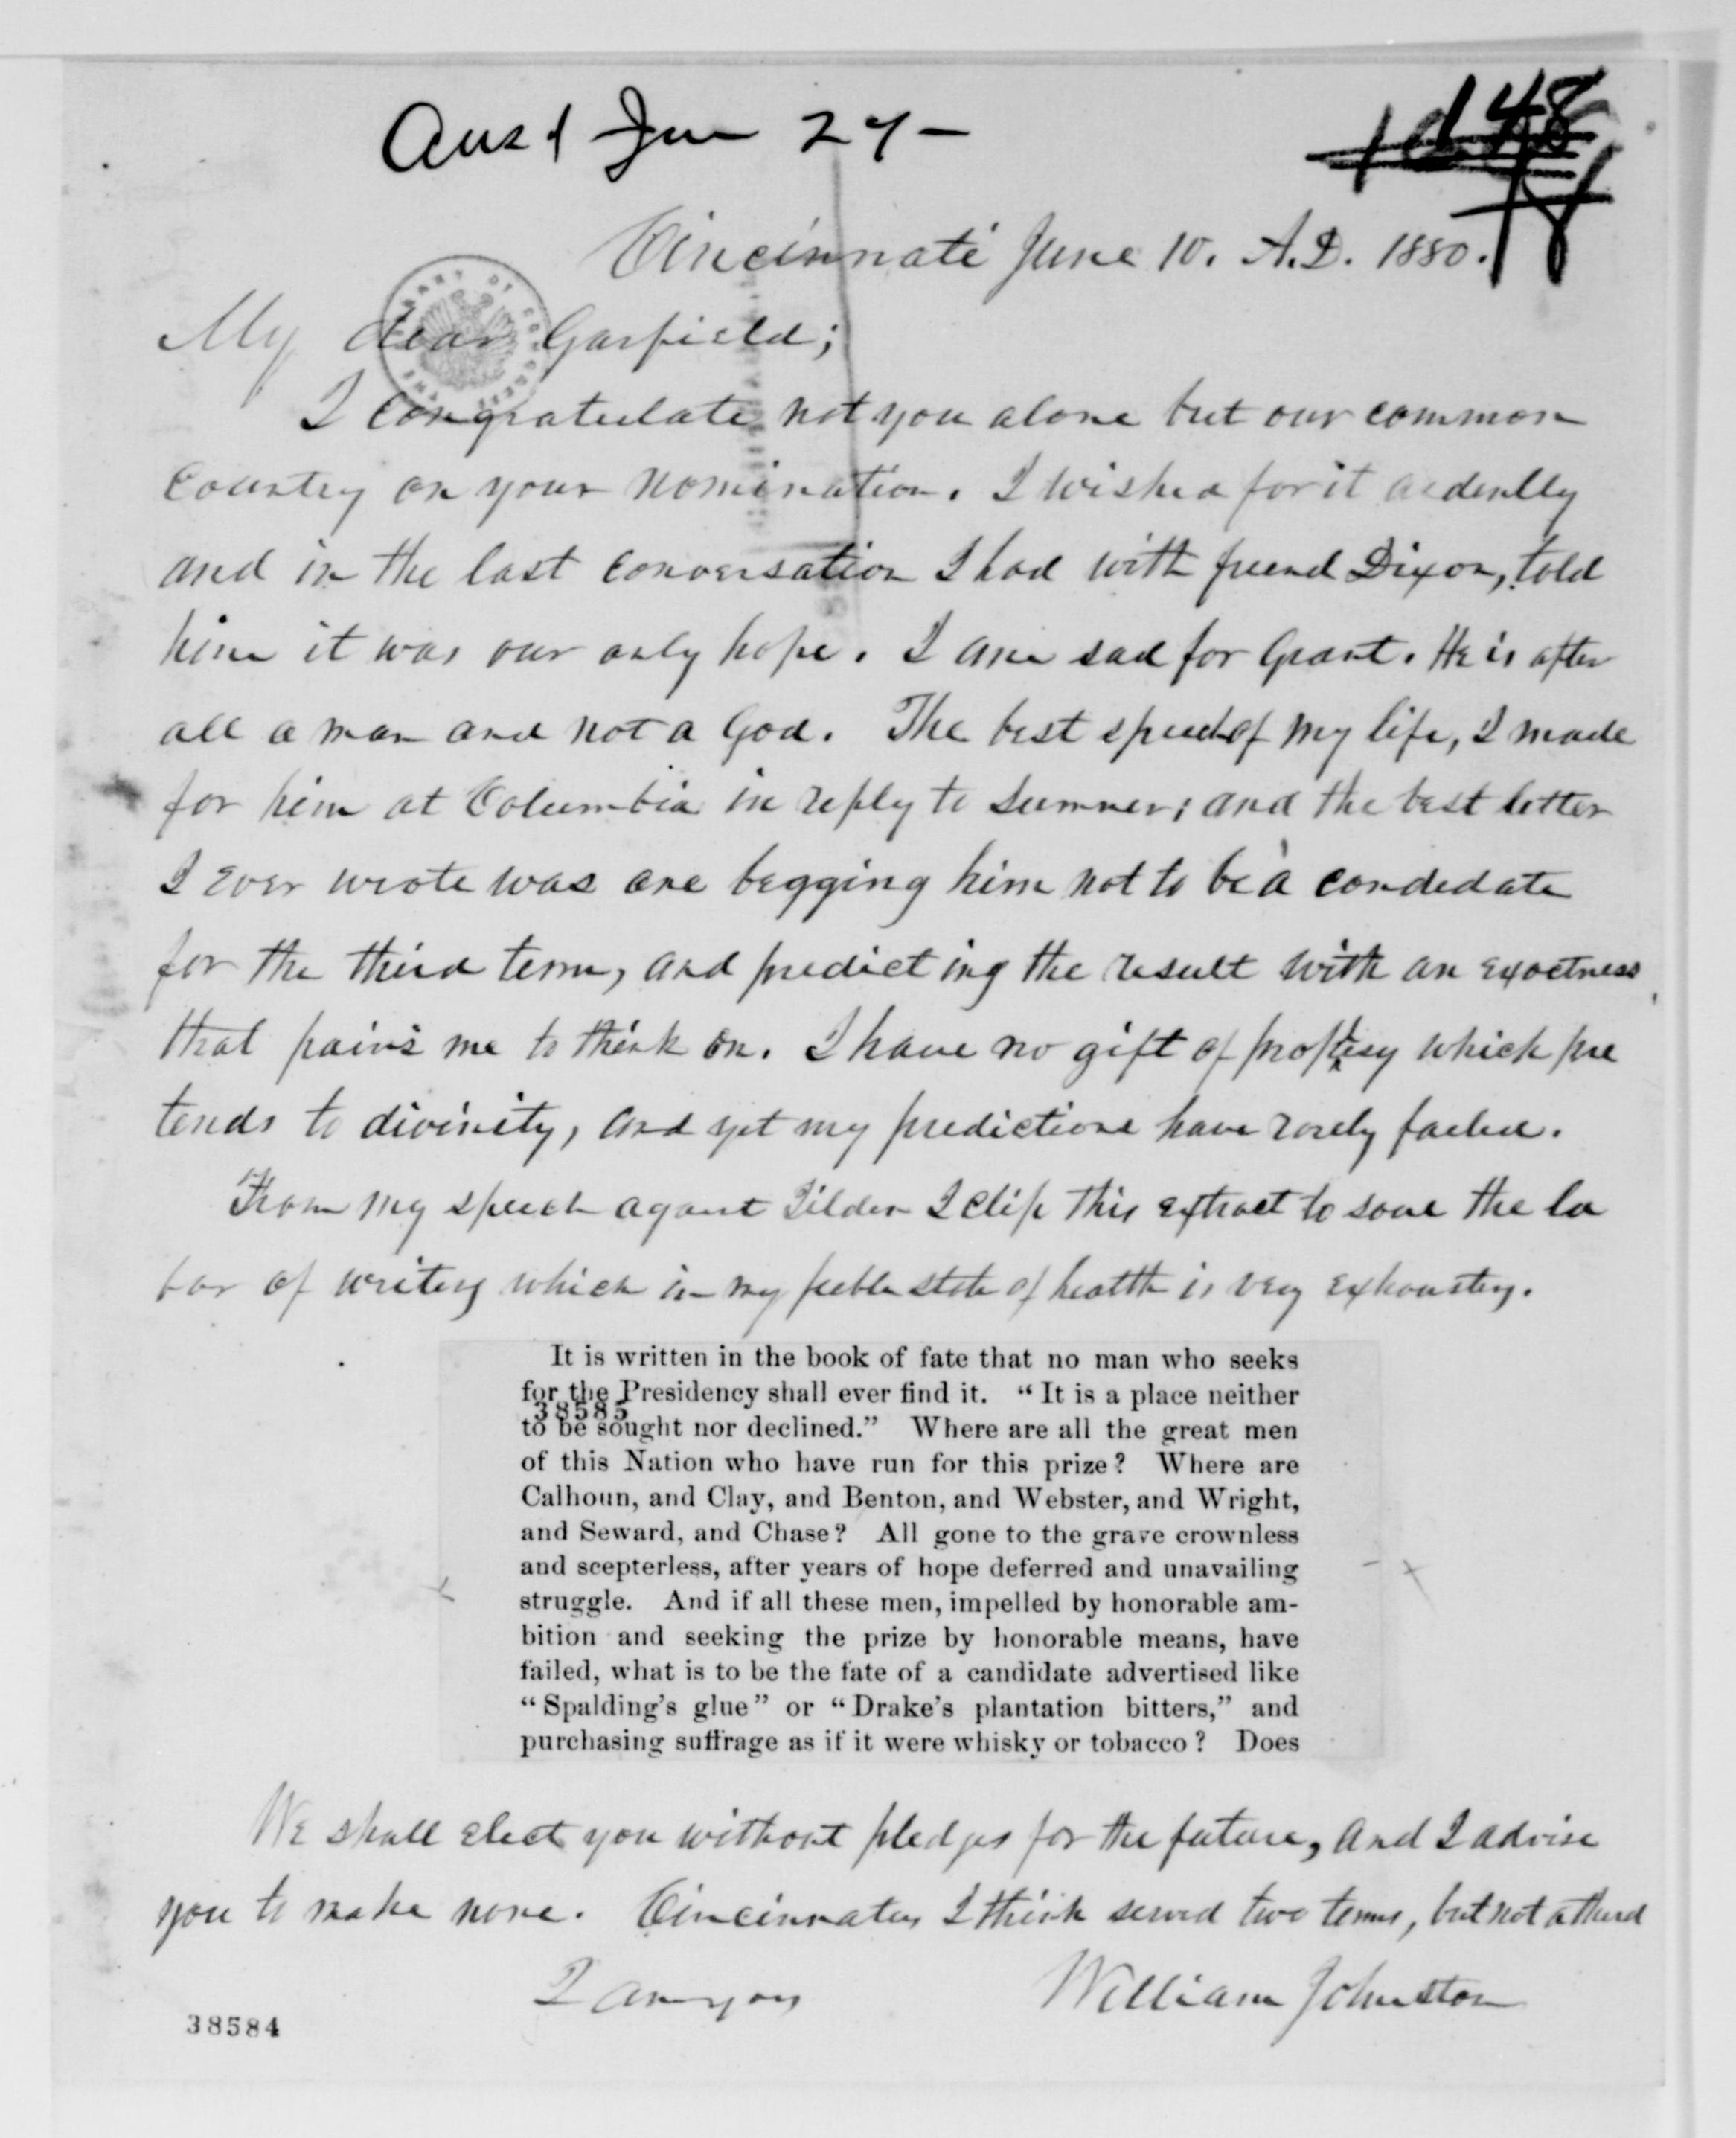 Ansd Jun 27-
Cincinnati June 10. A.D. 1880.
My dear Garfield;
I congratulate not you alone but our common
Country on your nomination. I wished for it ardently
and in the last conversation I had with friend Dixon, told
him it was our only hope. I am sad for Grant. He is after
all a man and not a God. The best speech of my life, I made
for him at Columbia in reply to Sumner; and the best letter
I ever wrote was one begging him not to be a condedate
for the third term, and predicting the result with an exactness
that pains me to think on. I have no gift of prophesy which pre
tends to divinity, and yet my predictions have rarely failed.
From my speech against Tilden I clip this extract to save the la
bor of writing which in my feeble state of health is very exhausting.
It is written in the book of fate that no man who seeks
for the Presidency shall ever find it. “It is a place neither
38585
to be sought nor declined.” Where are all the great men
of this Nation who have run for this prize? Where are
Calhoun, and Clay, and Benton, and Webster, and Wright,
and Seward, and Chase? All gone to the grave crownless
and scepterless, after years of hope deferred and unavailing
struggle. And if all these men, impelled by honorable am-
bition and seeking the prize by honorable means, have
failed, what is to be the fate of a candidate advertised like
“Spalding’s glue” or “Drake’s plantation bitters,” and
purchasing suffrage as if it were whisky or tobacco? Does
We shall elect you without pledges for the future, and I advise
you to make none. Cincinnatus I think served two terms, but not a third
I am yours
William Johnston
38584